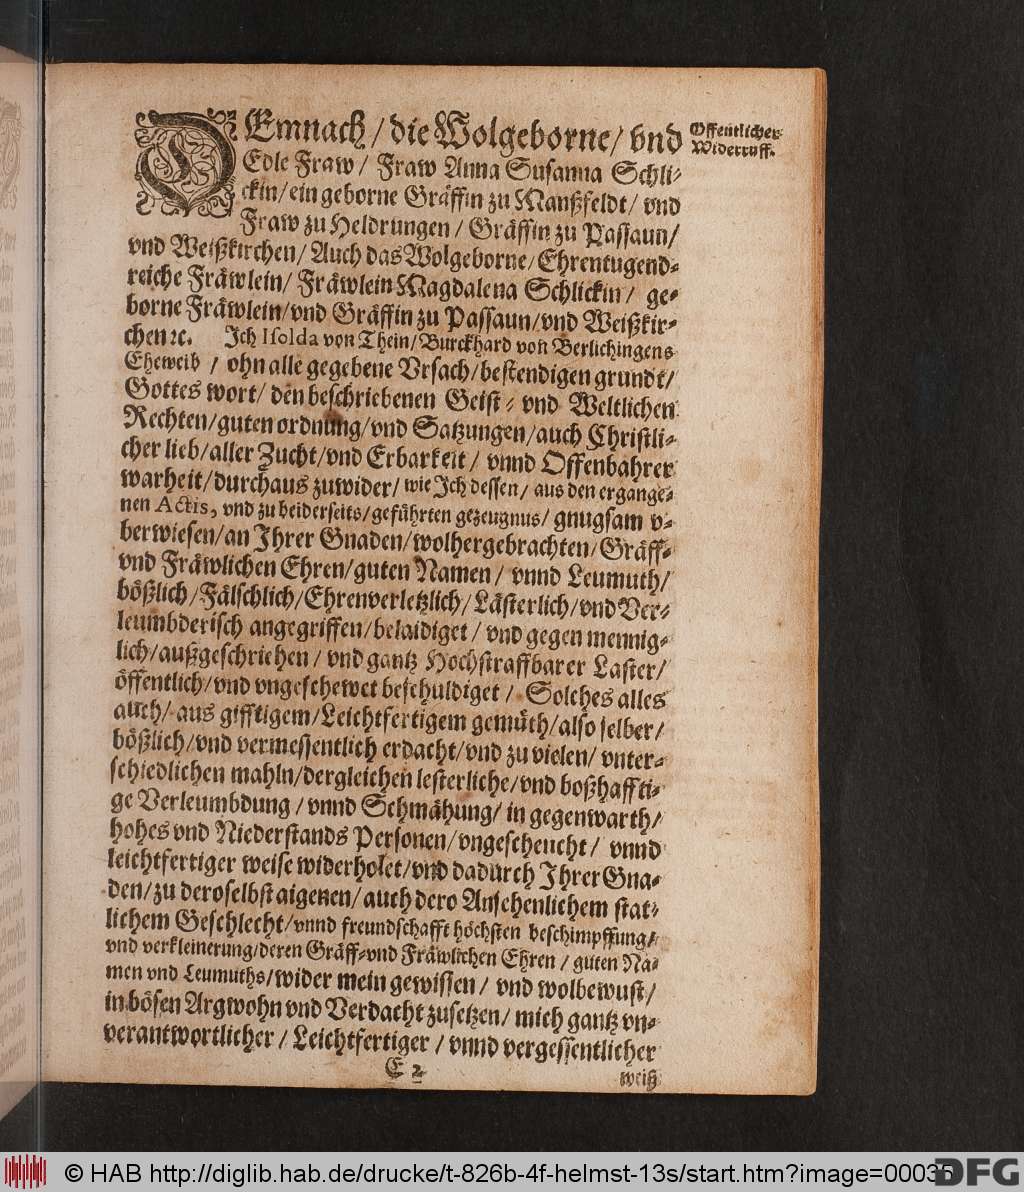 DEmnach / die Wolgeborne / vnd
Edle Fraw / Fraw Anna Susanna Schli⸗
ckin / ein geborne Gräffin zu Manßfeldt / vnd
Fraw zu Heldrungen / Gräffin zu Passaun /
vnd Weißkirchen / Auch das Wolgeborne / Ehrentugend⸗
reiche Fräwlein / Fräwlein Magdalena Schlickin / ge⸗
borne Fräwlein / vnd Gräffin zu Passaun / vnd Weißkir⸗
chen ꝛc. Ich Isolda von Thein / Burckhard von Berlichingens
Eheweib / ohn alle gegebene Vrsach / bestendigen grundt /
Gottes wort / den beschriebenen Geist⸗ vnd Weltlichen
Rechten / guten ordnung / vnd Satzungen / auch Christli⸗
cher lieb / aller Zucht / vnd Erbarkeit / vnnd Offenbahrer
warheit / durchaus zuwider / wie Ich dessen / aus den ergange⸗
nen Actis, vnd zu beiderseits / geführten gezeugnus / gnugsam v⸗
berwiesen / an Ihrer Gnaden / wolhergebrachten / Gräff⸗
vnd Fräwlichen Ehren / guten Namen / vnnd Leumuth /
bößlich / Fälschlich / Ehrenverletzlich / Lästerlich / vnd Ver⸗
leumbderisch angegriffen / belaidiget / vnd gegen mennig⸗
lich / außgeschriehen / vnd gantz Hochstraffbarer Laster /
öffentlich / vnd vngeschewet beschuldiget / Solches alles
auch / aus gifftigem / Leichtfertigem gemüth / also selber /
bößlich / vnd vermessentlich erdacht / vnd zu vielen / vnter⸗
schiedlichen mahln / dergleichen lesterliche / vnd boßhaffti⸗
ge Verleumbdung / vnnd Schmähung / in gegenwarth /
hohes vnd Niederstands Personen / vngescheucht / vnnd
leichtfertiger weise widerholet / vnd dadurch Ihrer Gna⸗
den / zu deroselbst aigenen / auch dero Ansehenlichem stat⸗
lichem Geschlecht / vnnd freundschafft höchsten beschimpffung /
vnd verkleinerung / deren Gräff⸗ vnd Fräwlichen Ehren / guten Na⸗
men vnd Leumuths / wider mein gewissen / vnd wolbewust /
in bösen Argwohn vnd Verdacht zusetzen / mich gantz vn⸗
verantwortlicher / Leichtfertiger / vnnd vergessentlicher
E 2
weiß
Offentlicher
Widerruff.
© HAB http://diglib.hab.de/drucke/t-826b-4f-helmst-13s/start.htm?image=00035
DFG